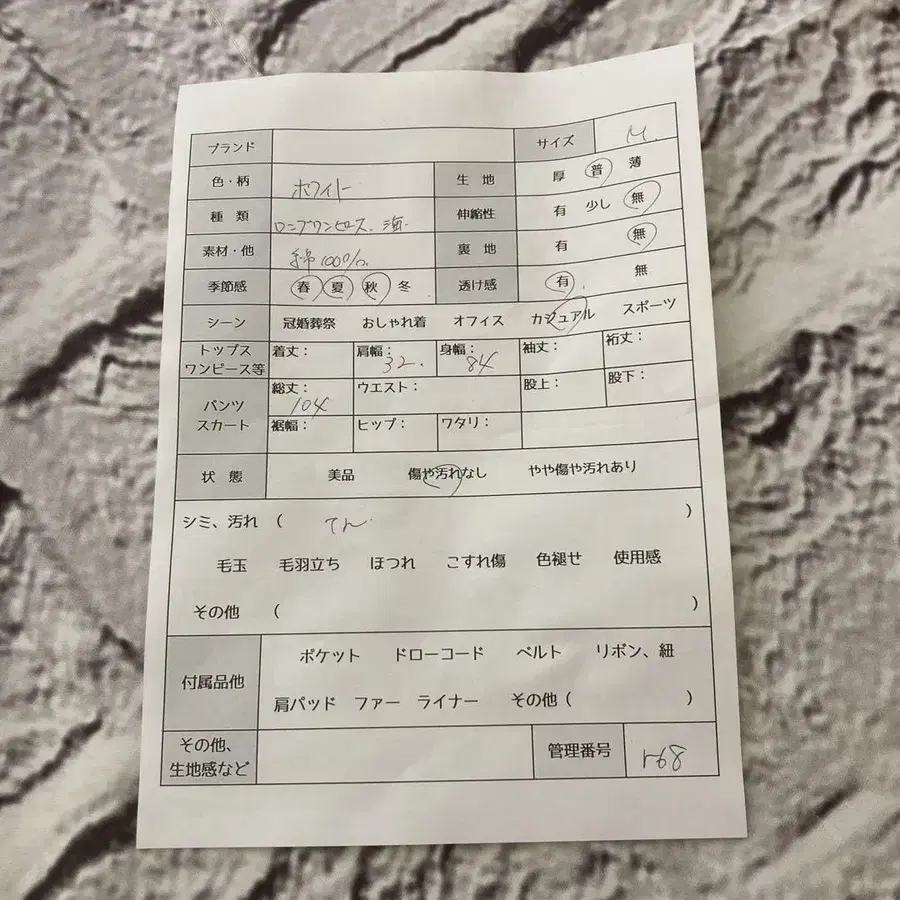 ブランド サイズ M.
色・柄 ホワイト 生 地 厚 普 薄
種 類 ロングワンピース. 海. 伸縮性 有 少し 無
素材・他 綿100%. 裏 地 有 無
季節感 春 夏 秋 冬 透け感 有 無
シーン 冠婚葬祭 おしゃれ着 オフィス カジュアル スポーツ
トップス ワンピース等 着丈： 肩幅： 32. 身幅： 84 袖丈： 裄丈：
パンツ スカート 総丈： 104 ウエスト： 股上： 股下：
裾幅： ヒップ： ワタリ：
状 態 美品 傷や汚れなし やや傷や汚れあり
シミ、汚れ （ てん ）
毛玉 毛羽立ち ほつれ こすれ傷 色褪せ 使用感
その他 （ ）
付属品他 ポケット ドローコード ベルト リボン、紐
肩パッド ファー ライナー その他（ ）
その他、 生地感など 管理番号 r68